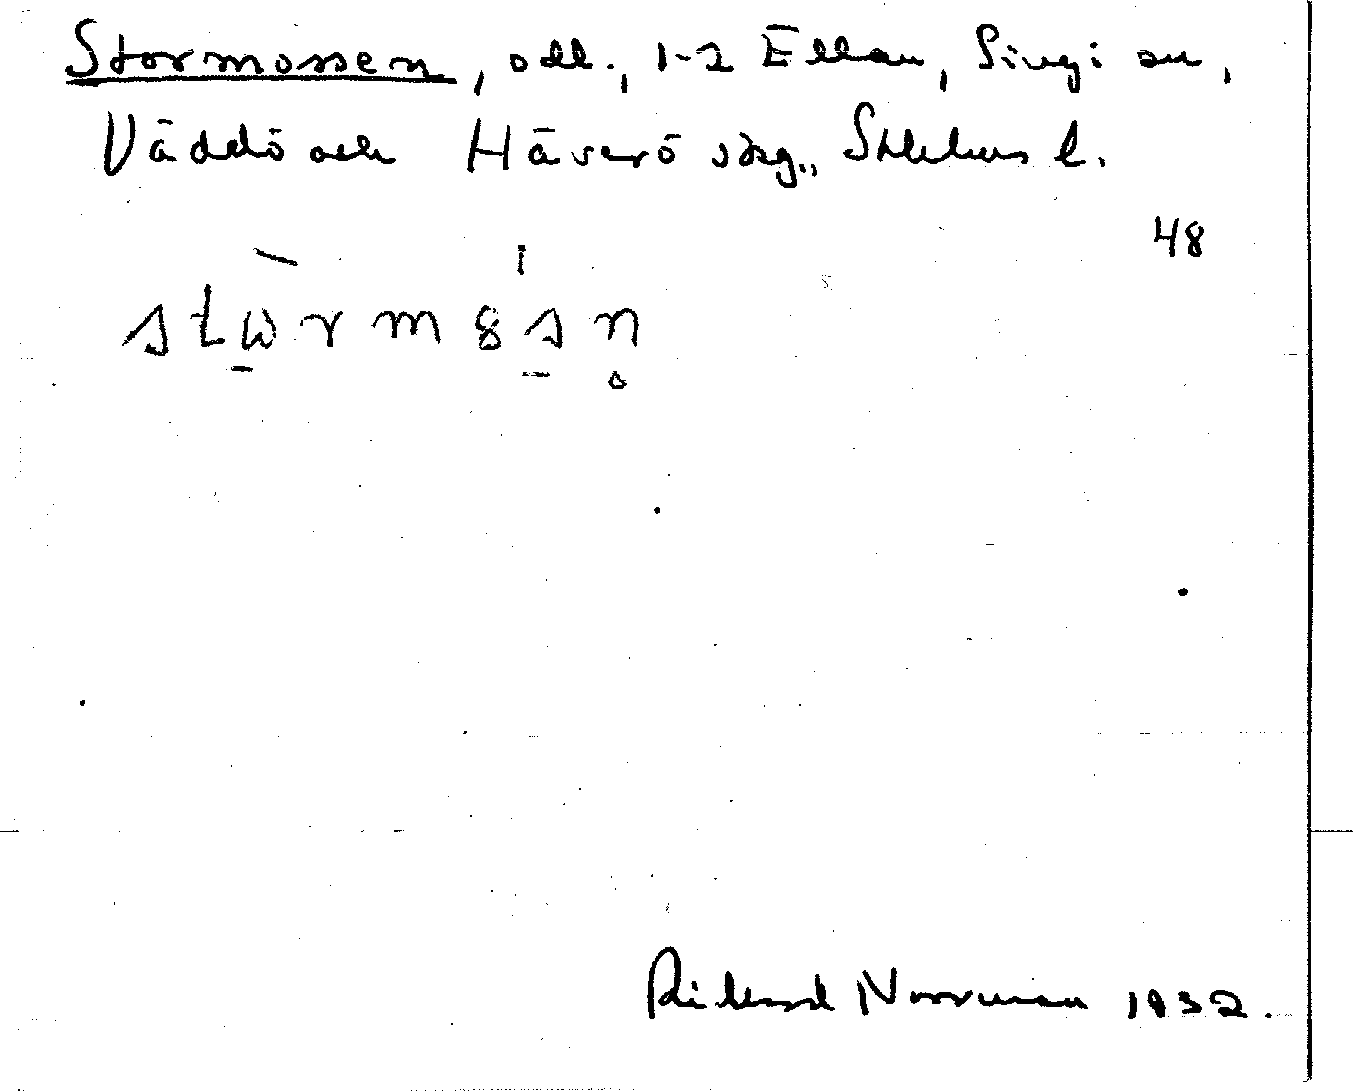 Stormossen, odl., 1-2 Ellan, Singö sn,
Väddö och Häverö skg., Sthlms l.
48
Rickard Norrman 1932.